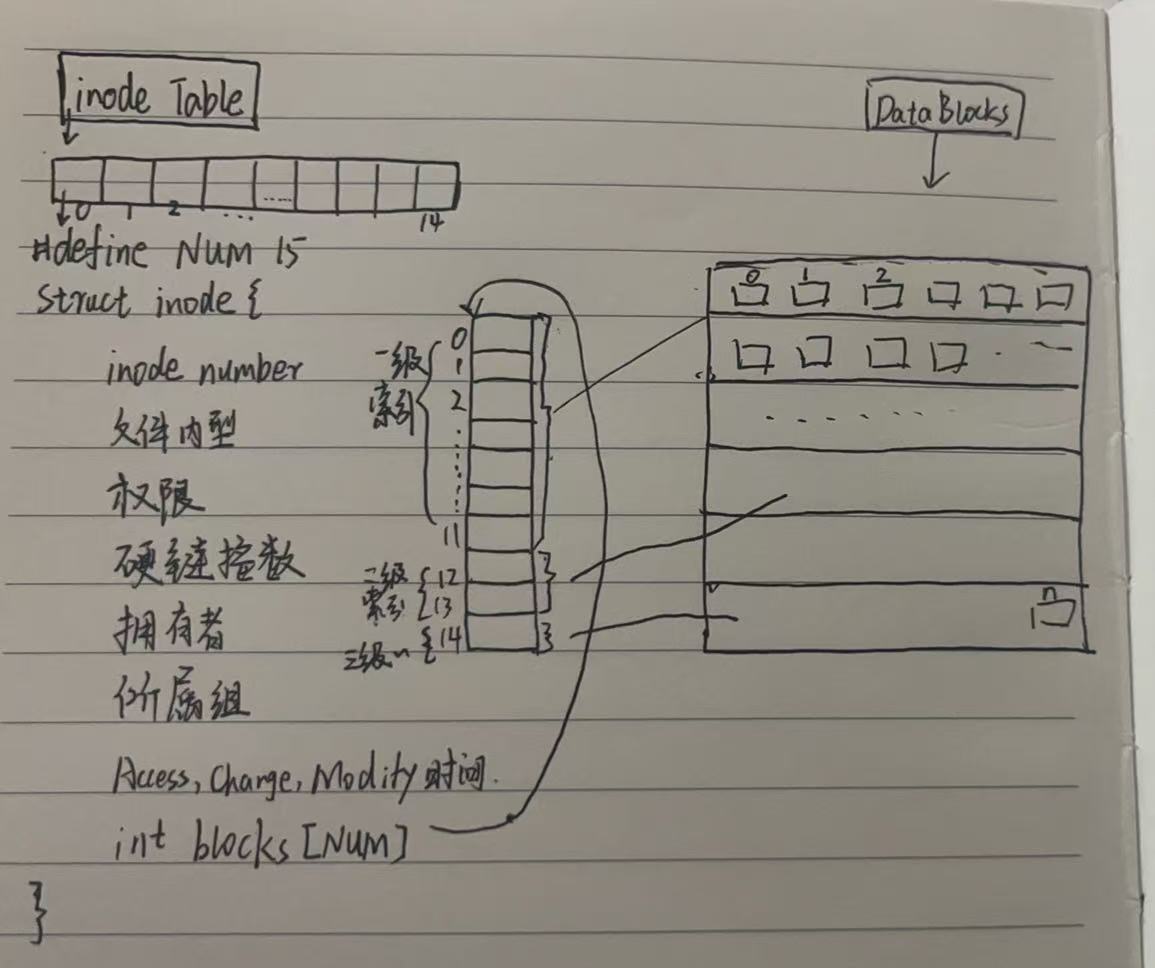 inode Table
Data Blocks
0 1 2 ... ...... 14
#define NUM 15
struct inode {
inode number
文件内型
权限
硬链接数
拥有者
所属组
Access, Change, Modify 时间.
int blocks [NUM]
}
一级
索引
0
1
2
11
二级
索引
12
13
三级〃
14
0 1 2
n